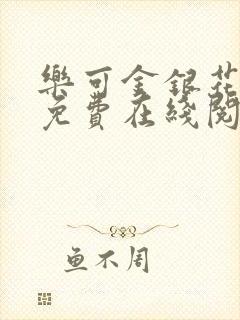 樂可金銀花
免費在綫閱
鱼不周